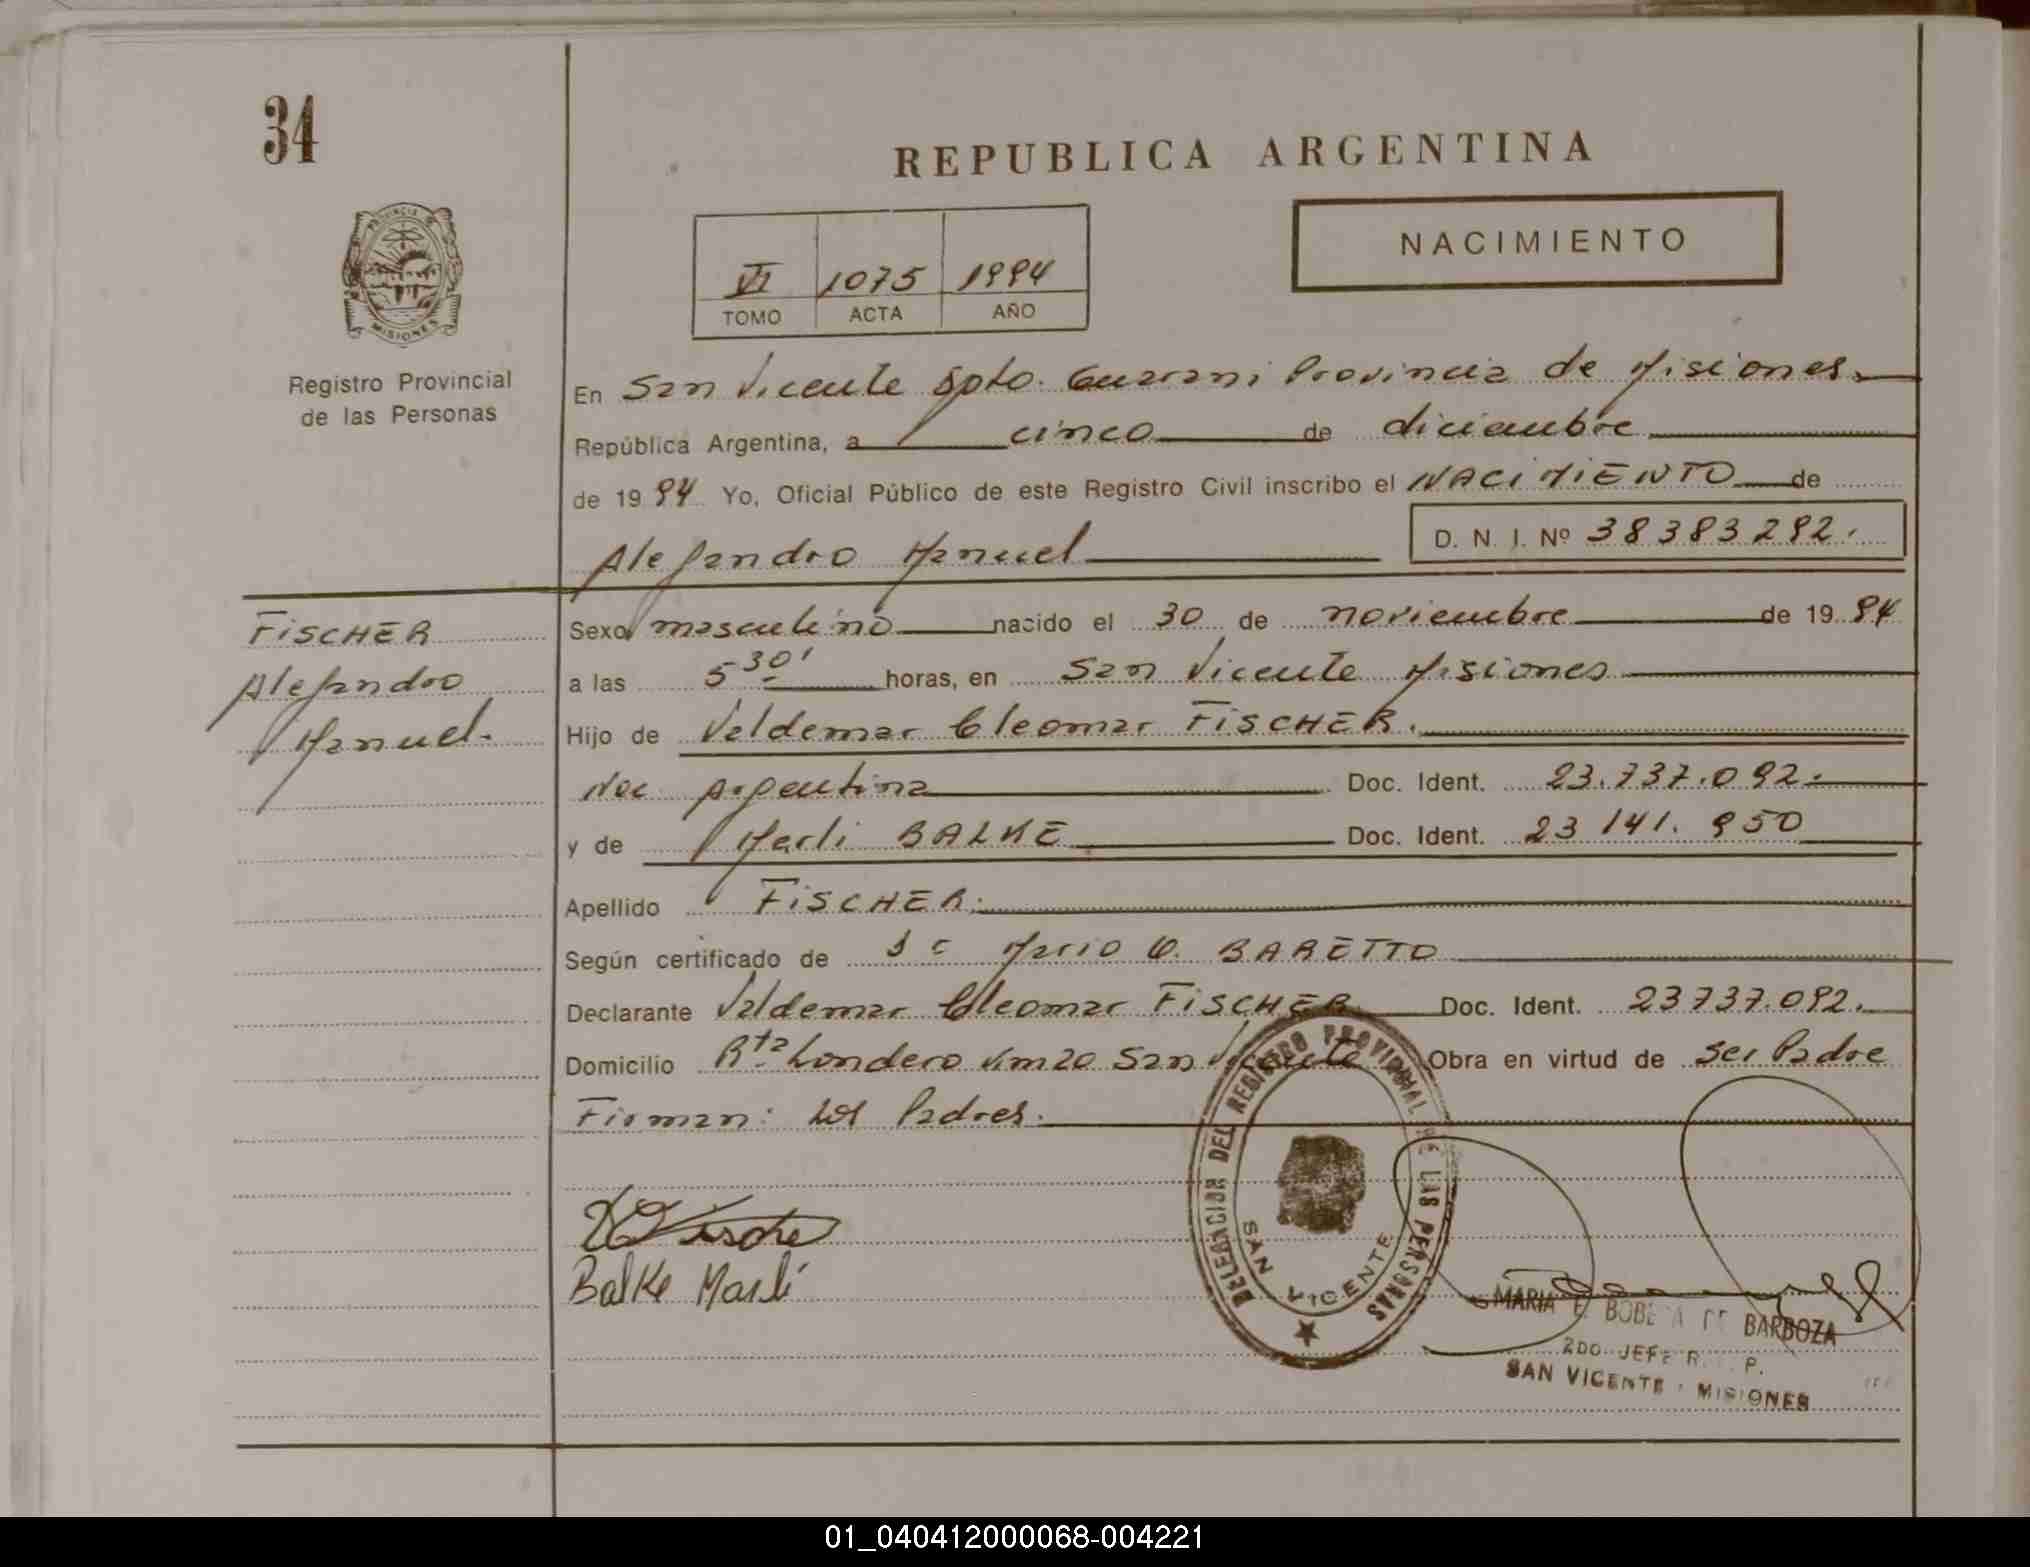 34
REPUBLICA ARGENTINA
PROVINCIA DE
MISIONES
NACIMIENTO
VI 1075 1994
TOMO ACTA AÑO
Registro Provincial
de las Personas
En San Vicente Dpto. Guarani Provincia de Misiones
República Argentina, a cinco de diciembre
de 1994 Yo, Oficial Público de este Registro Civil inscribo el NACIMIENTO de
Alejandro Manuel D. N. I. Nº 38383292.
FiSCHER
Alejandro
Manuel.
Sexo masculino nacido el 30 de noviembre de 1994
a las 5 30' horas, en San Vicente Misiones
Hijo de Valdemar Cleomar FiSCHER.
Nac. Argentina Doc. Ident. 23.737.092.
y de Marli BALKE Doc. Ident. 23 141. 950
Apellido FiSCHER.
Según certificado de Mario BARETTO
Declarante Valdemar Cleomar FiSCHER Doc. Ident. 23737.092.
Domicilio Rta Londero Km 20 San Vicente Obra en virtud de ser Padre
Firman: los Padres.
DELEGACION DEL REGISTRO PROVINCIAL DE LAS PERSONAS
SAN VICENTE
Balke Marli
MARIA E. DE BARBOZA
2DO. JEFE R. P.
SAN VICENTE - MISIONES
01_040412000068-004221